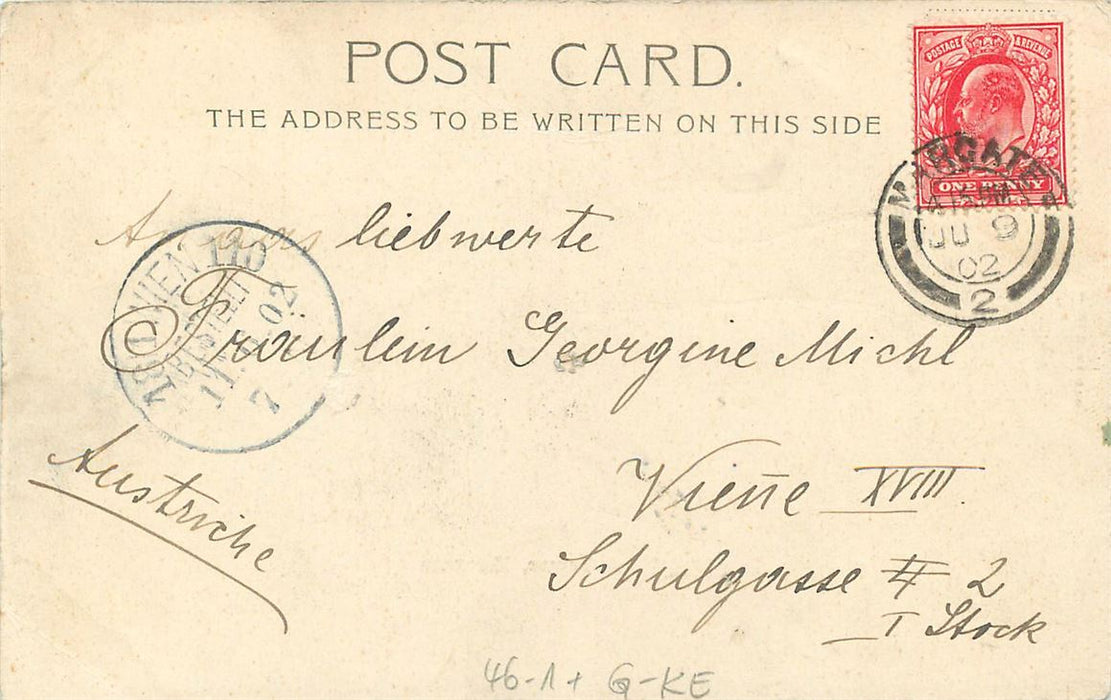 POST CARD.
THE ADDRESS TO BE WRITTEN ON THIS SIDE
POSTAGE & REVENUE
ONE PENNY
MARGATE
JU 9
02
2
liebwerte
Fräulein Georgine Michl
WIEN 110
BESTELLT
02
7
Austriche
Vien̄e XVIII.
Schulgasse # 2
I Stock
46-1+ G-KE